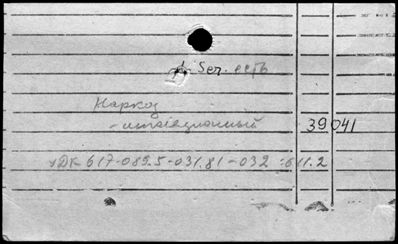 Ser. есть
Наркоз
- ингаляционный 39041
УДК 617-089.5-031.81-032:611.2